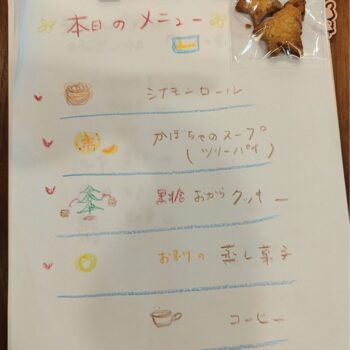 本日のメニュー
シナモンロール
かぼちゃのスープ
(ツリーパイ)
黒糖おからクッキー
蒸し菓子
コーヒー